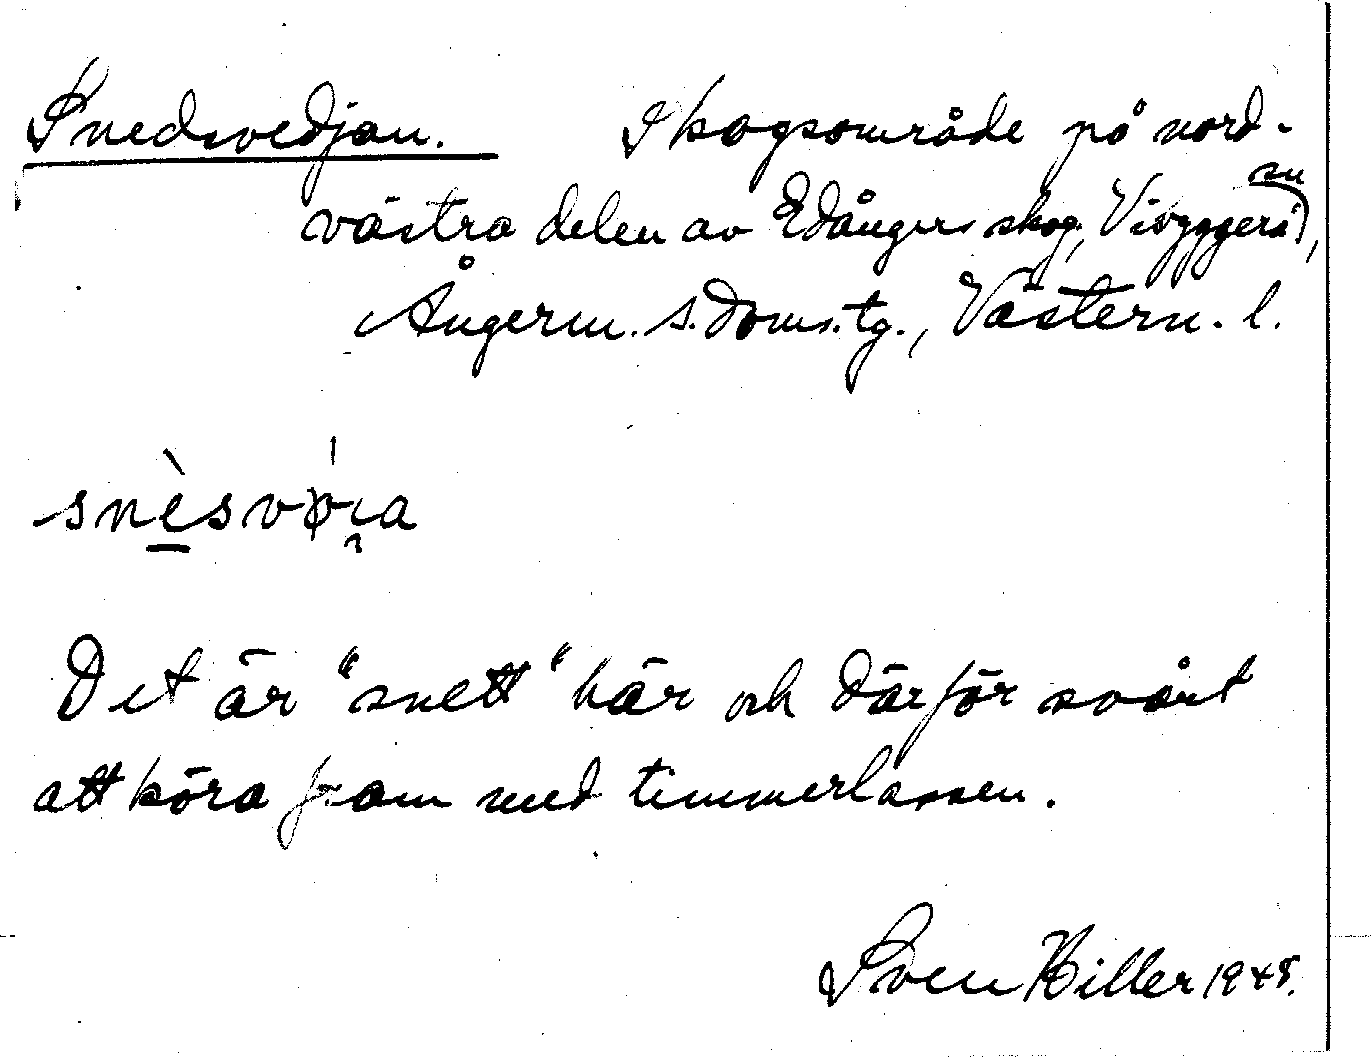 Snedsvedjan. Skogsområde på nord-
västra delen av Edångers skog, Vibyggerå sn,
Ångerm. s. doms.tg., Västern. l.
snèsvø̍i̯a
Det är "snett" här och därför svårt
att köra fram med timmerlassen.
Sven Hiller 1948.